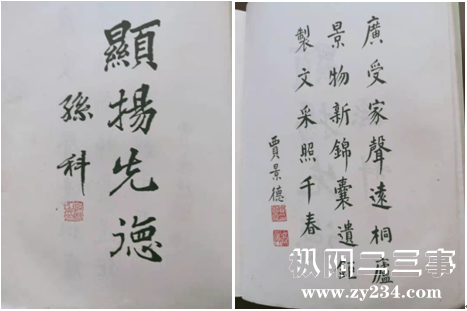 顯揚先德
孫科
廣受家聲遠桐廬
景物新錦囊遺鉅
製文采照千春
賈景德
枞阳二三事
www.zy234.com